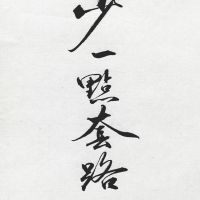 少一點套路